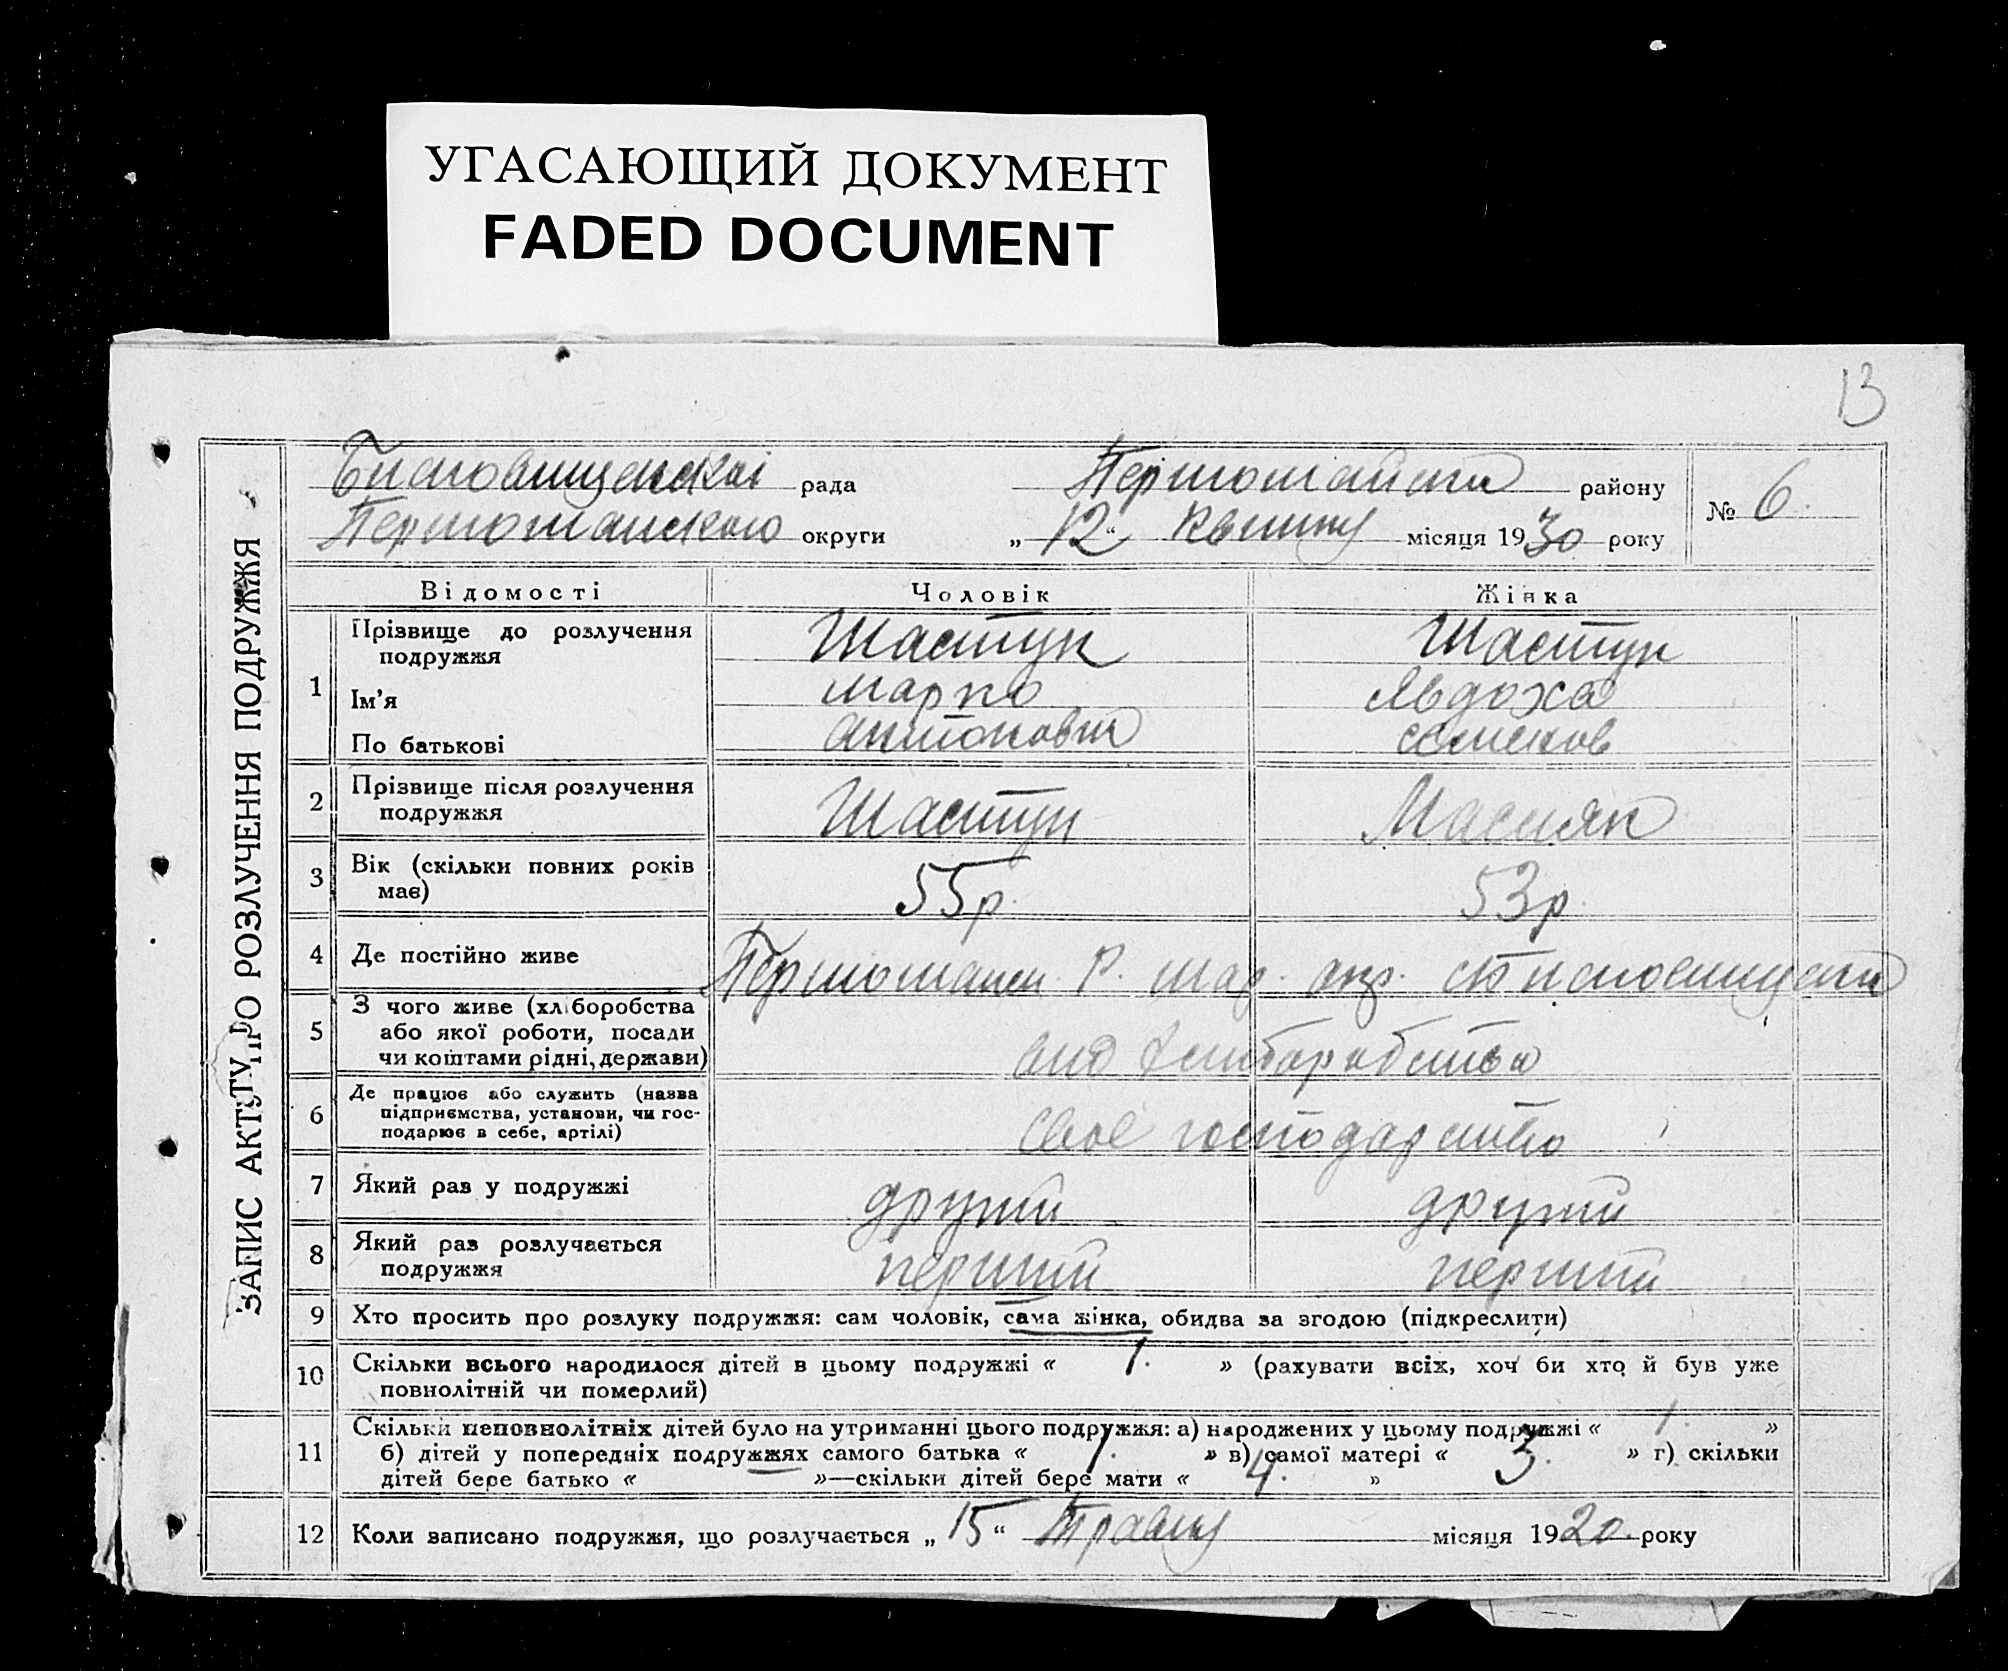 УГАСАЮЩИЙ ДОКУМЕНТ
FADED DOCUMENT
13
ЗАПИС АКТУ ПРО РОЗЛУЧЕННЯ ПОДРУЖЖЯ
рада района району
округи „12“ Квітню місяця 1930 року
№ 6.
Відомості Чоловік Жінка
1 Прізвище до розлучення подружжя Шастун Шастун
Ім'я Марко Явдоха
По батькові Антонович Семенов
2 Прізвище після розлучення подружжя Шастун Масляк
3 Вік (скільки повних років має) 55р. 53р.
4 Де постійно живе
5 З чого живе (хліборобства або якої роботи, посади чи коштами рідні, держави) від хліборобства
6 Де працює або служить (назва підприємства, установи, чи господарює в себе, артілі) своє господарство
7 Який раз у подружжі другий другий
8 Який раз розлучається подружжя перший перший
9 Хто просить про розлуку подружжя: сам чоловік, сама жінка, обидва за згодою (підкреслити)
10 Скільки всього народилося дітей в цьому подружжі « 1. » (рахувати всіх, хоч би хто й був уже
повнолітній чи померлий)
11 Скільки неповнолітніх дітей було на утриманні цього подружжя: а) народжених у цьому подружжі « 1. »
б) дітей у попередніх подружжях самого батька « 1. » в) самої матері « 3. » г) скільки
дітей бере батько « »—скільки дітей бере мати « 4. »
12 Коли записано подружжя, що розлучається „15“ Травню місяця 1920. року